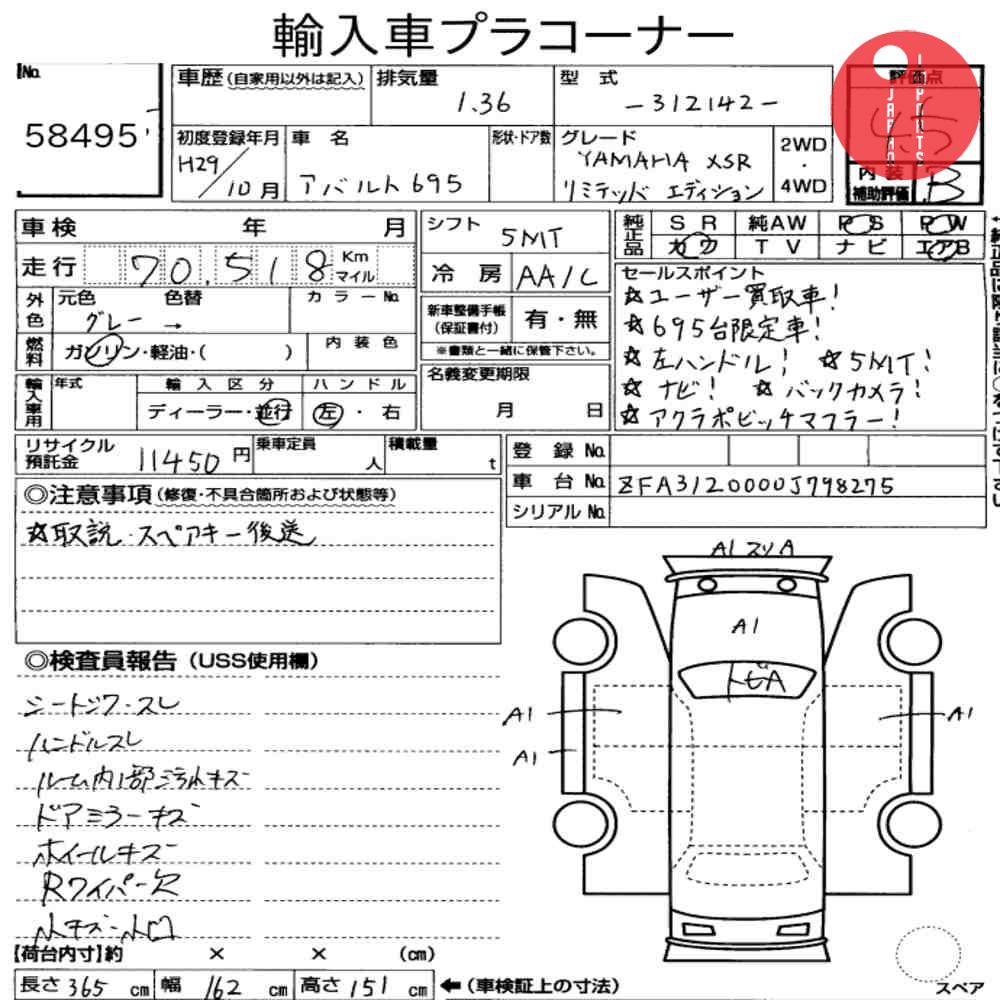 輸入車プラコーナー
No.
58495
車歴(自家用以外は記入)
排気量
1.36
型 式
-312142-
評価点
4.5
JAPAN IMPORTS
初度登録年月
H29/10月
車 名
アバルト695
形状・ドア数
グレード
YAMAHA XSR
リミテッド エディション
2WD
・
4WD
内 装
補助評価
B
車検 年 月
走行 70,518 Km マイル
シフト
5MT
冷 房 AA/C
純正品 SR 純AW PS PW
カワ TV ナビ エアB
外色
元色 色替
グレー →
カラーNo.
燃料
ガソリン・軽油・( )
内装色
新車整備手帳
(保証書付)
有・無
※書類と一緒に保管下さい。
セールスポイント
☆ユーザー買取車!
☆695台限定車!
☆左ハンドル! ☆5MT!
☆ナビ! ☆バックカメラ!
☆アクラポビッチマフラー!
輸入車用
年式
輸入区分
ディーラー・並行
ハンドル
左・右
名義変更期限
月 日
リサイクル
預託金
11450円
乗車定員
人
積載量
t
登 録 No.
車 台 No. ZFA3120000J798275
シリアル No.
◎注意事項(修復・不具合箇所および状態等)
☆取説・スペアキー後送
◎検査員報告(USS使用欄)
シートシワ・スレ
ハンドルスレ
ルーム内1部汚れキズ
ドアミラーキズ
ホイールキズ
Rワイパー欠
小キズ・小凹
A1 スリA
A1
トビA
A1
A1
A1
【荷台内寸】約 × × (cm)
長さ 365 cm 幅 162 cm 高さ 151 cm ←(車検証上の寸法)
スペア